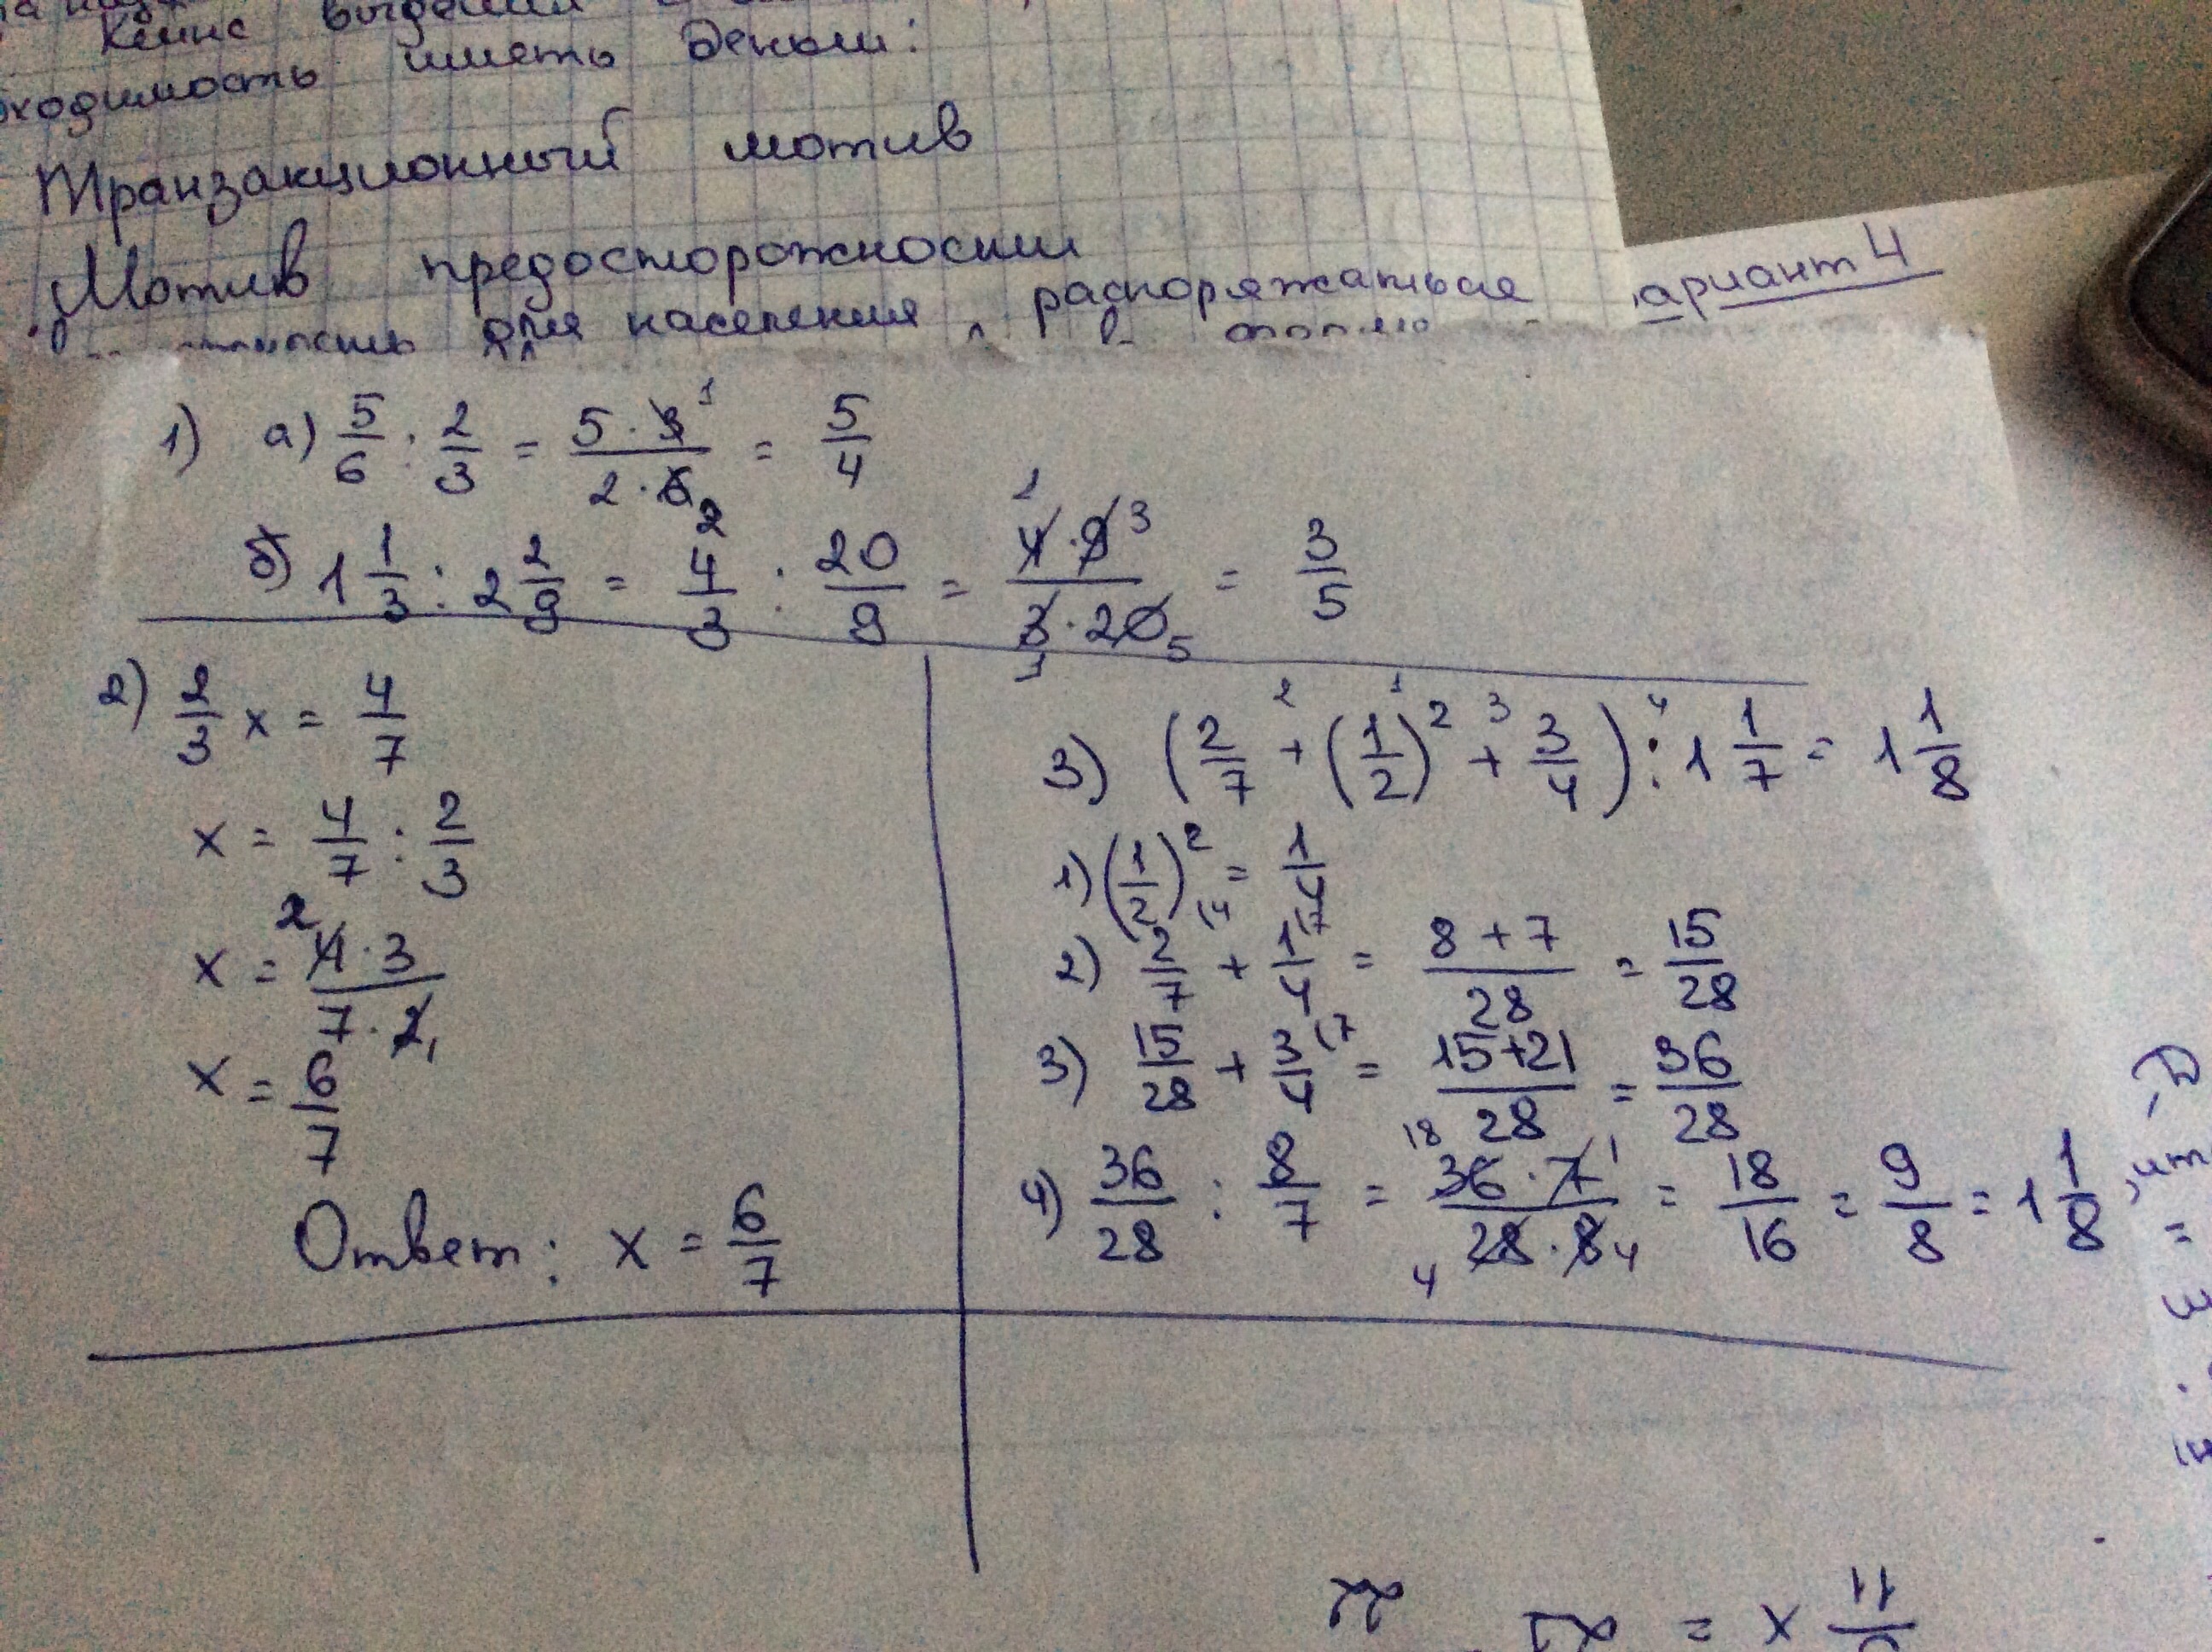 Кейнс выделил
ходимость иметь деньги:
Транзакционный мотив
Мотив предосторожности
для населения распоряжаться
ариант 4
1) а) 5/6 : 2/3 = (5 · 3 1)/(2 · 6 2) = 5/4
б) 1 1/3 : 2 2/9 = 4/3 : 20/9 = (1 4 · 9 3)/(3 1 · 20 5) = 3/5
2) 2/3 x = 4/7
x = 4/7 : 2/3
x = (2 4 · 3)/(7 · 2 1)
x = 6/7
Ответ: x = 6/7
3) (2/7 +² (1/2)² ¹ +³ 3/4) :⁴ 1 1/7 = 1 1/8
1) (1/2)² = 1/4
2) 2/7 (4 + 1/4 (7 = (8 + 7)/28 = 15/28
3) 15/28 + 3/4 (7 = (15+21)/28 = 36/28
4) 36/28 : 8/7 = (18 36 · 7 1)/(4 28 · 8 4) = 18/16 = 9/8 = 1 1/8